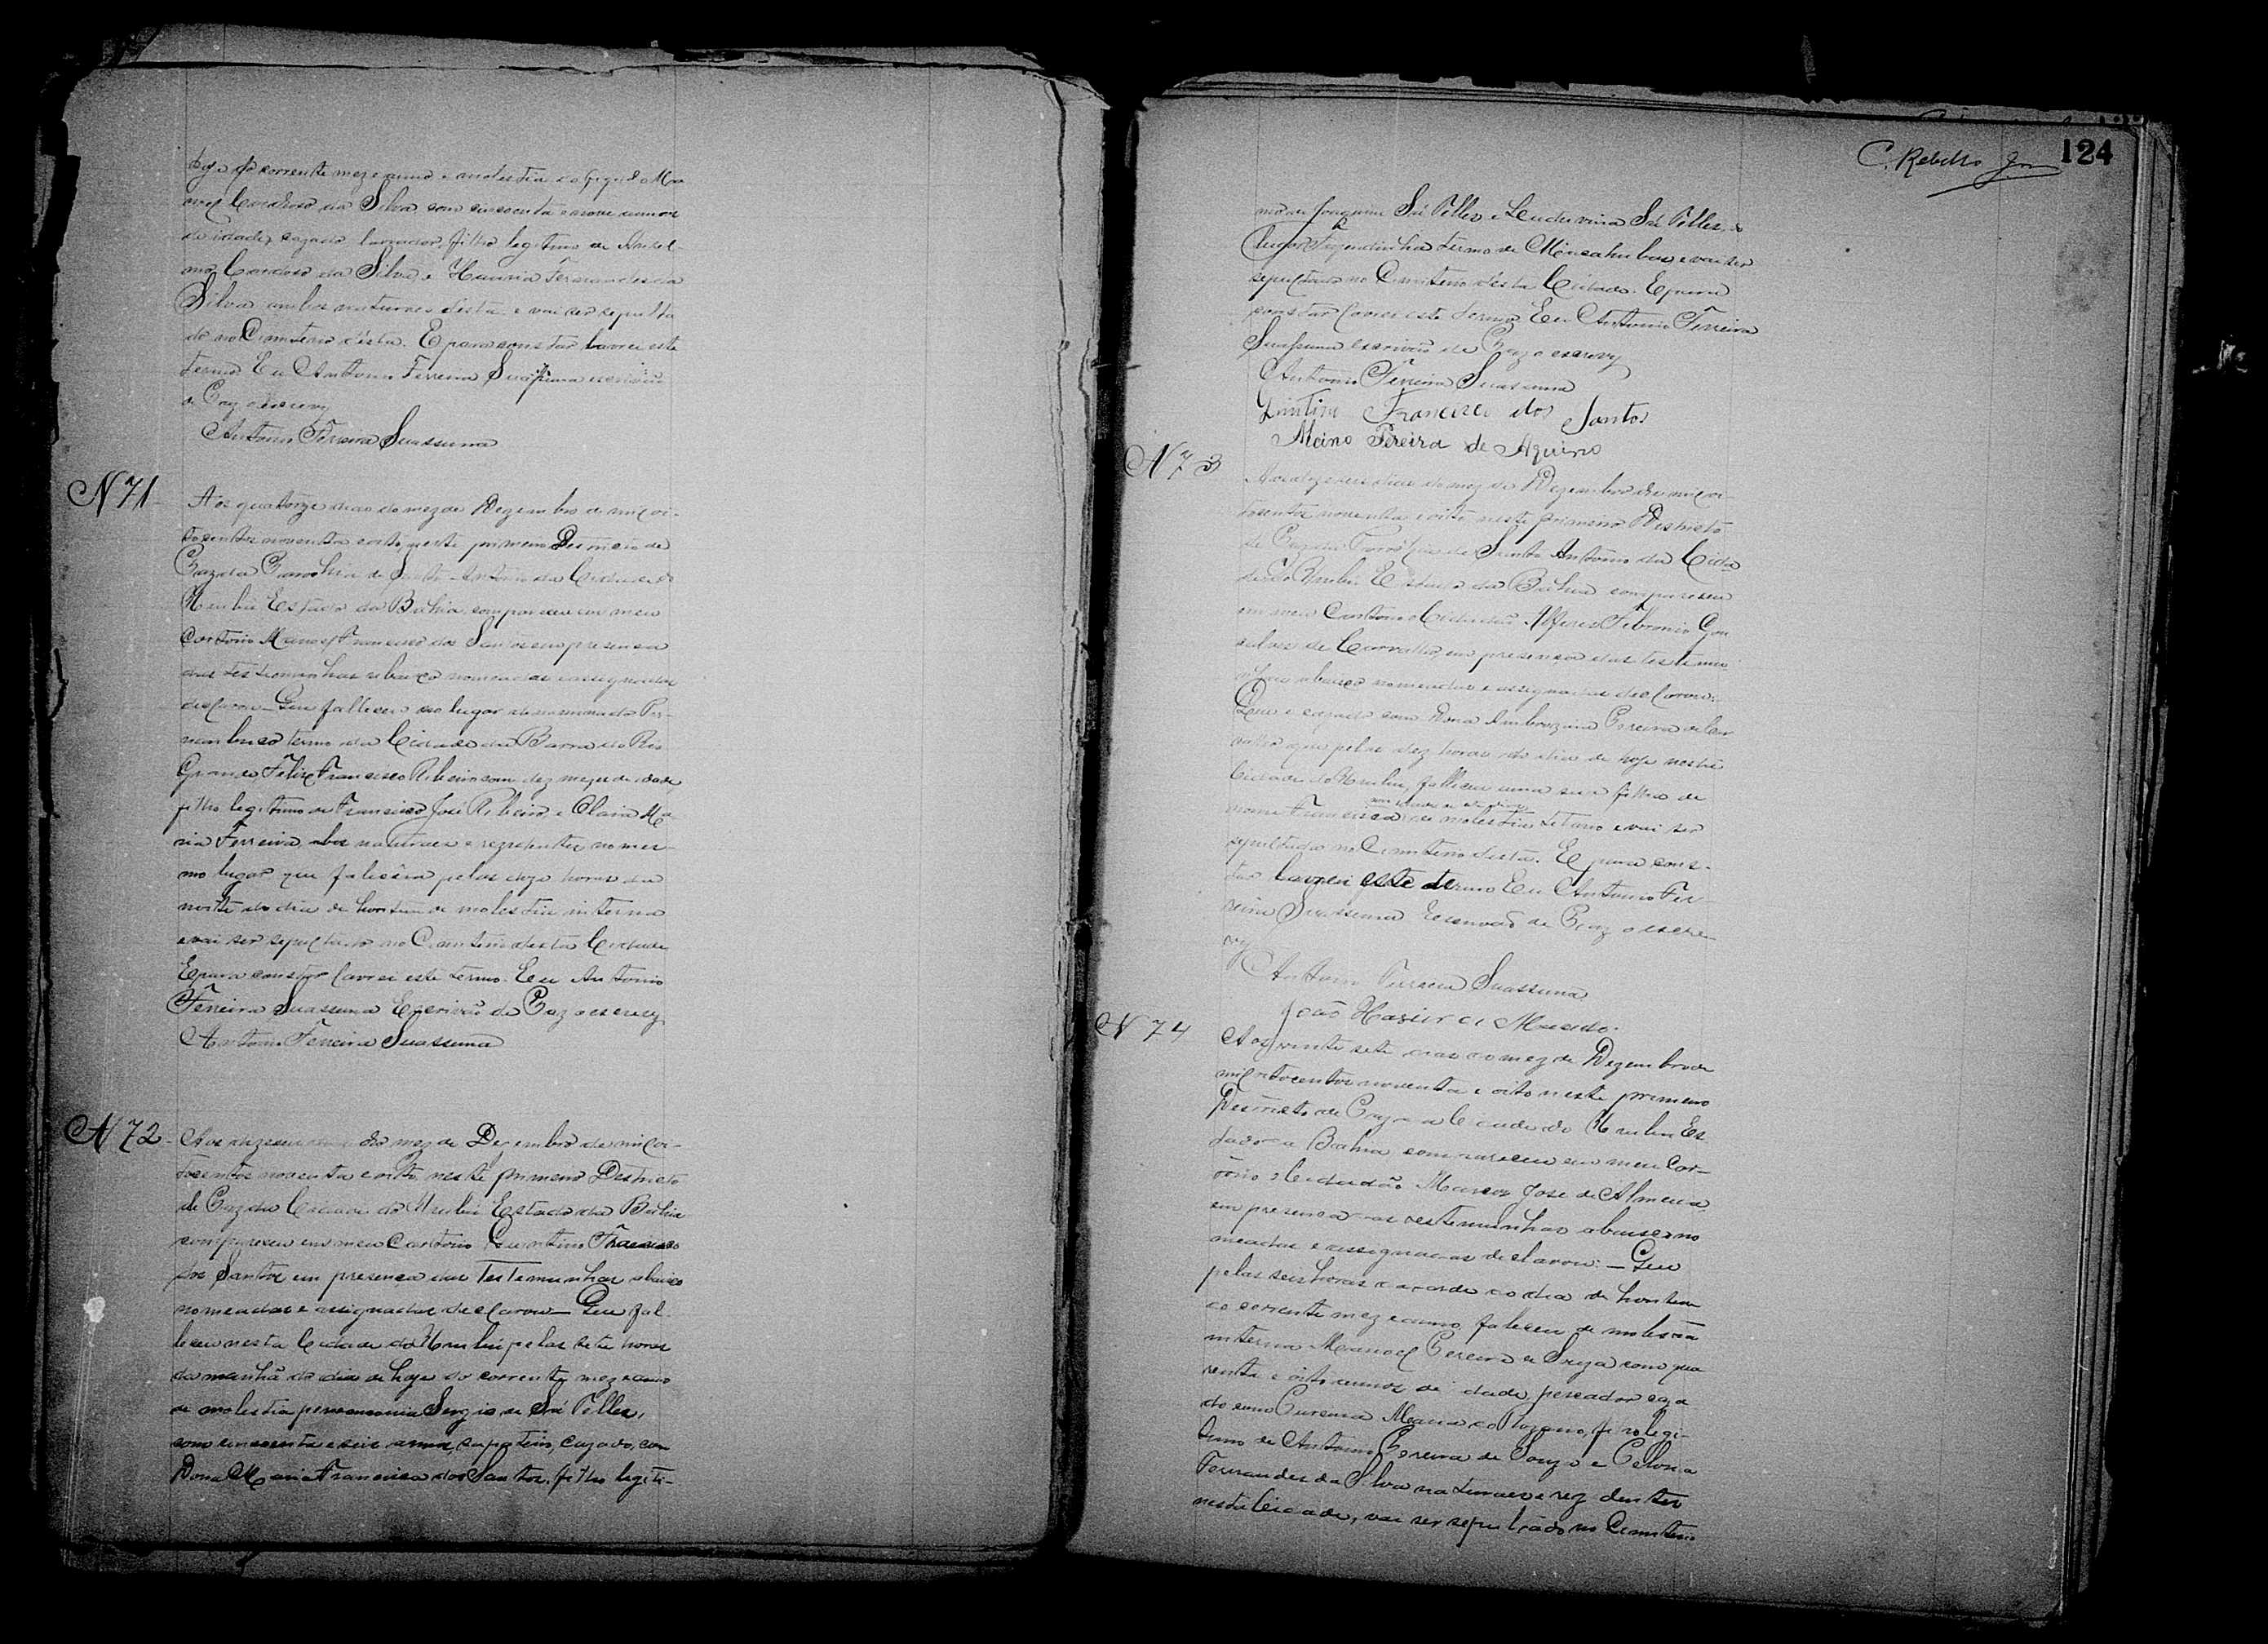 hoje do corrente mez e anno e molestia do figado Ma
noel Cardoso da Silva com sincoenta e nove annos
de idade, cazado lavrador, filho legitimo de Ansel-
mo Cardoso da Silva, e Fernandes da
Silva ambos naturaes desta e vai ser sepulta
do no Cimiterio desta. E para constar lavrei este
termo Eu Antonio Ferreira Suassuna escrivão
de Paz o escrevy
Antonio Ferreira Suassuna
N 71
Aos quatorze dias do mez de Dezembro de mil oi-
tocentos noventa e oito, neste primeiro Destricto de
Paz da Parochia de Santo Antonio da Cidade do
Urubú Estado da Bahia, compareceu em meu
Cartorio Manoel Francisco dos Santos em presensa
das testemunhas abaixo nomeadas e assignadas
declarou - Que falleceu no lugar denominado Per-
nambuco termo da Cidade da Barra do Rio
Grande Felix Francisco Ribeiro com dez mezes de idade
filho legitimo de Francisco José Ribeiro e Clara Ma-
ria Ferreira, naturaes e rezidentes no mes-
mo lugar que falicêra pelas doze horas da
noite do dia de hontem de molestia interna
e vai ser sepultado no Cimiterio desta Cidade
E para constar lavrei este termo. Eu Antonio
Ferreira Suassuna Escrivão de Paz o escrevy
Antonio Ferreira Suassuna
N 72
Aos dezeseis dias do mez de Dezembro de mil oi-
tocentos noventa e oito, neste primeiro Destricto
de Paz da Cidade do Urubú Estado da Bahia
compareceu em meu Cartorio Quintino Francisco
dos Santos em presensa das Testemunhas abaixo
nomeadas e assignadas declarou - Que fal-
leceu nesta Cidade do Urubú pelas sete horas
da manhã do dia de hoje do corrente mez e anno
de molestia peneumonia Sergio de Sá Telles,
com sincoenta e seis annos, sapateiro, cazado, com
Dona Maria Francisca dos Santos, filho legiti-
124
C. Rebello Jor
mo de Joaquim Sá Telles e Leuduvina Sá Telles, do
lugar Fazendinha termo de Macahubas e vai ser
sepultado no Cimiterio desta Cidade. E para
constar lavrei este termo Eu Antonio Ferreira
Suassuna escrivão de Paz o escrevy
Antonio Ferreira Suassuna
Quintino Francisco dos Santos
Alcino Pereira de Aquino
N 73
Aos dezeseis dias do mez de Dezembro de mil oi-
tocentos noventa e oito, neste primeiro Destricto
de Paz da Parochia de Santo Antonio da Cida
de do Urubú Estado da Bahia compareceu
em meu Cartorio o Cidadão Alferes Febronio Gon
salves de Carvalho, em presensa das testemu-
nhas abaixo nomeadas e assignadas declarou:
Que é cazado com Dona Ambrozina Pereira de Car
valho que pelas dez horas do dia de hoje nesta
Cidade do Urubú, falleceu uma sua filha de
nome Francisca de molestia tetano e vai ser
sepultada no Cimiterio desta. E para cons-
tar lavrei este termo Eu Antonio Fer-
reira Suassuna Escrivão de Paz o escre-
vy
Antonio Ferreira Suassuna
João de Macedo.
N 74
Aos vinte sete dias do mez de Dezembro de
mil oitocentos noventa e oito neste primeiro
Destricto de Paz da Cidade do Urubú Es
tado da Bahia compareceu em meu Car-
torio o Cidadão Marcos Jose de Almeida
em presensa das testemunhas abaixo no
meadas e assignadas declarou: - Que
pelas seis horas da tarde do dia de hontem
do corrente mez e anno, faleceu de molestia
interna Manoel Pereira de Souza com qua
renta e oito annos de idade, pescador caza
do com Maria do Rozario, filho legi-
timo de Antonio Pereira de Souza e
Fernandes da Silva naturaes e rezidentes
nesta Cidade, vai ser sepultado no Cimiterio